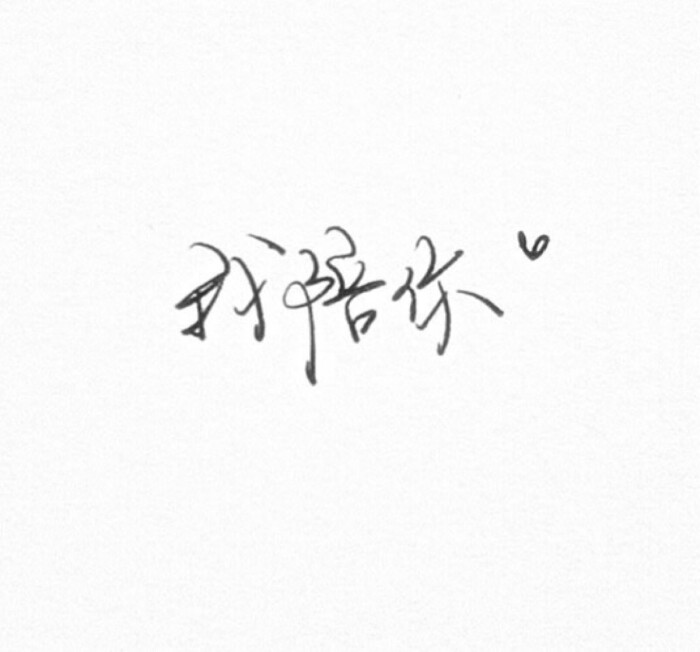 我陪你